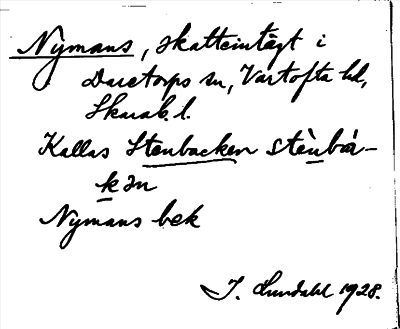 Nymans, skatteintägt i
Daretorps sn, Vartofta hd,
Skarab. l.
Kallas Stenbacken stènbà-
kən
Nymans bek
I. Lundahl 1928.